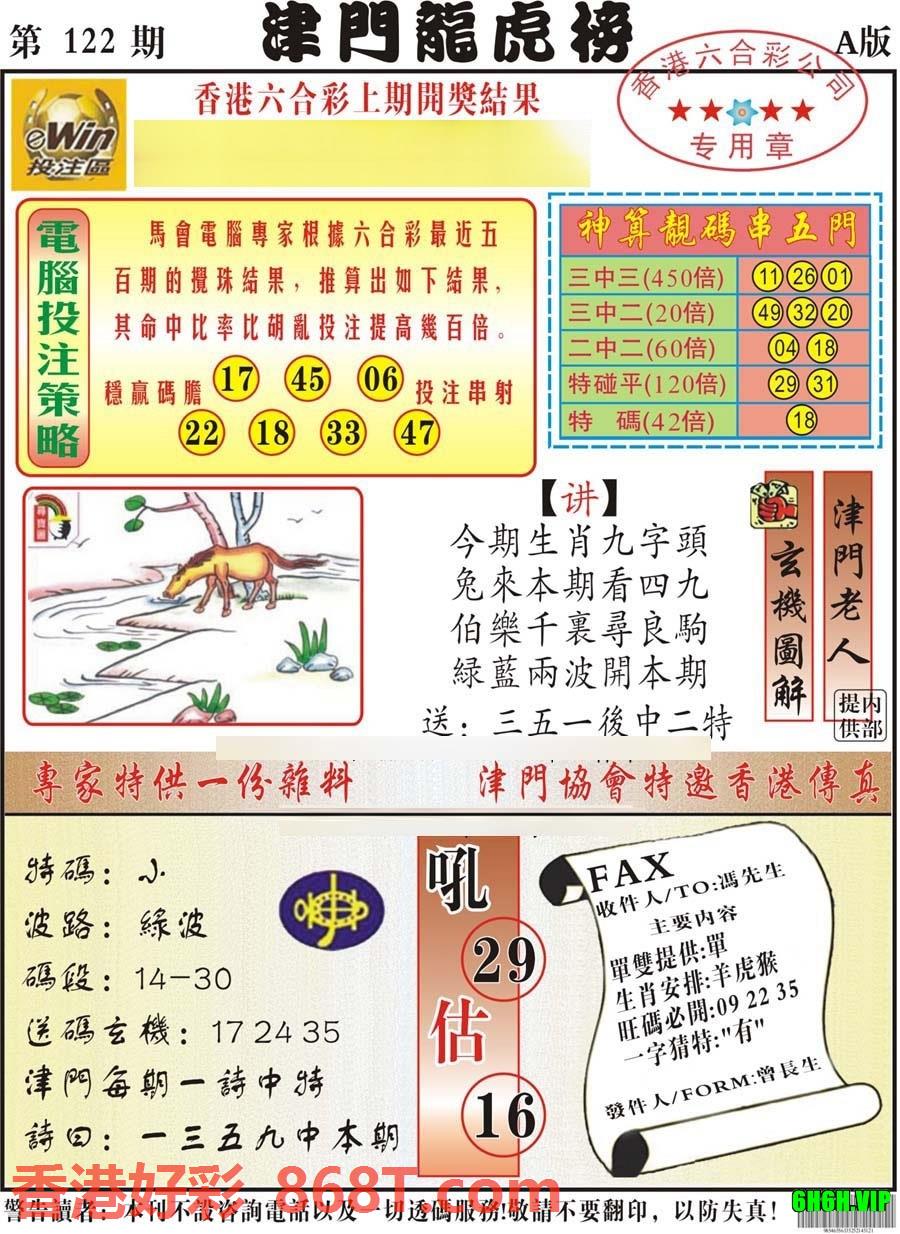 第 122 期
津門龍虎榜
A版
eWin
投注區
香港六合彩上期開獎結果
香港六合彩公司
★★★★
专用章
電腦投注策略
馬會電腦專家根據六合彩最近五
百期的攪珠結果，推算出如下結果，
其命中比率比胡亂投注提高幾百倍。
穩贏碼膽 17 45 06 投注串射
22 18 33 47
神算靚碼串五門
三中三(450倍) 11 26 01
三中二(20倍) 49 32 20
二中二(60倍) 04 18
特碰平(120倍) 29 31
特 碼(42倍) 18
尋寶圖
【讲】
今期生肖九字頭
兔來本期看四九
伯樂千裏尋良駒
緑藍兩波開本期
送：三五一後中二特
玄機圖解
津門老人
内部提供
專家特供一份雜料
津門協會特邀香港傳真
特碼：小
波路：綠波
碼段：14-30
送碼玄機：17 24 35
津門每期一詩中特
詩曰：一三五九中本期
吼
29
估
16
FAX
收件人/TO:馮先生
主要内容
單雙提供:單
生肖安排:羊虎猴
旺碼必開:09 22 35
一字猜特:"有"
發件人/FORM:曾長生
香港好彩 868T.com
警告讀者：本刊不設咨詢電話以及一切透碼服務!敬請不要翻印，以防失真!
6H6H.VIP